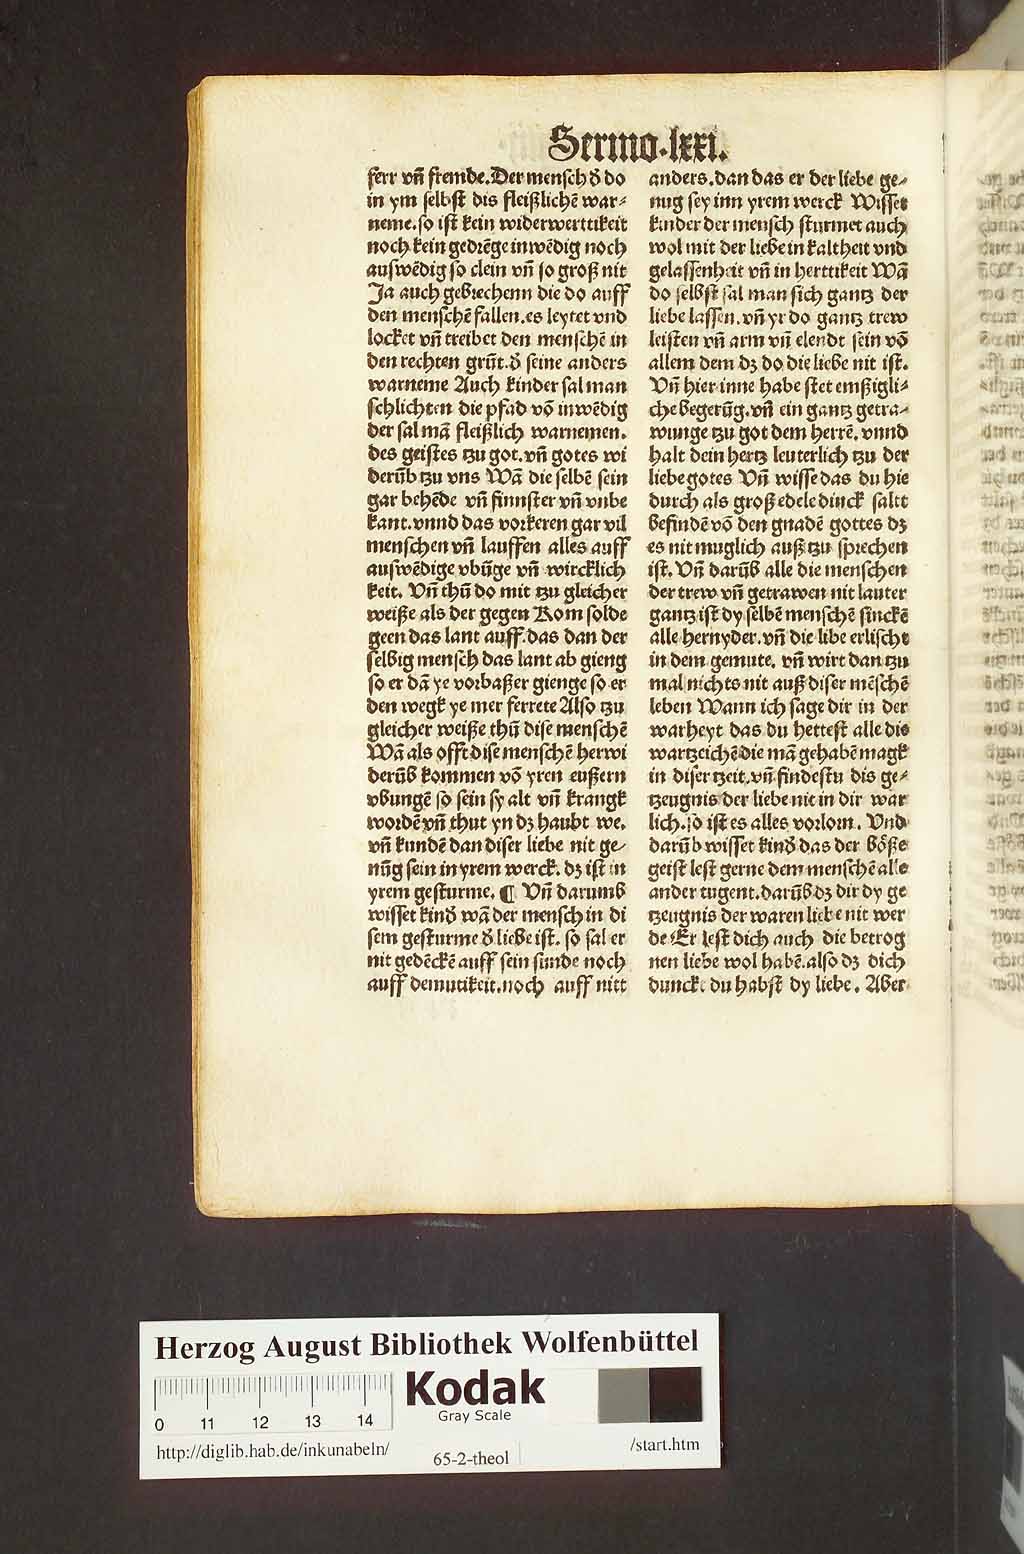 Sermo.lxxi.
ferr vn̄ fremde.Der mensch d̕ do
in ym selbst dis fleißlichē war⸗
neme.so ist kein widerwerttikeit
noch kein gedrēge inwēdig noch
auswēdig so clein vn̄ so groß nit
Ja auch gebrechenn die do auff
den menschē fallen.es leytet vnd
locket vn̄ treibet den menschē in
den rechten grūt.d̕ seine anders
warneme Auch kinder sal man
schlichten die pfad vō inwēdig
der sal mā fleißlich warnemen.
des geistes tzu got.vn̄ gotes wi
derūb tzu vns Wā die selbē sein
gar behēde vn̄ finnster vn̄ vnbe
kant.vnnd das vorkeren gar vil
menschen vn̄ lauffen alles auff
auswēdige vbūge vn̄ wircklich
keit. Vn̄ thū do mit tzu gleicher
weiße als der gegen Rom solde
geen das lant auff.das dan der
selbig mensch das lant ab gieng
so er dā ye vorbaßer gienge so er
den wegk ye mer ferrete Also tzu
gleicher weiße thū dise menschē
Wā als offt dise menschē herwi
derūb kommen vō yren eußern
vbungē so sein sy alt vn̄ krangk
wordē vn̄ thut yn dʒ haubt we.
vn̄ kundē dan diser liebe nit ge⸗
nūg sein in yrem werck. dʒ ist in
yrem gesturme. ¶ Vn̄ darumb
wisset kind̕ wā der mensch in di
sem gesturme d̕ liebe ist. so sal er
nit gedēckē auff sein sunde noch
auff demutikeit.noch auff nitt
anders.dan das er der liebe ge⸗
nug sey inn yrem werck Wisset
kinder der mensch sturmet auch
wol mit der liebe in kaltheit vnd
gelassenheit vn̄ in herttikeit Wā
do selbst sal man sich gantz der
liebe lassen.vn̄ yr do gantz trew
leisten vn̄ arm vn̄ elendt sein vō
allem dem dʒ do die liebe nit ist.
Vn̄ hier inne habe stet emßigli⸗
che begerūg.vn̄ ein gantz getra⸗
wunge tzu got dem herrē. vnnd
halt dein hertz leuterlich tzu der
liebe gotes Vn̄ wisse das du hie
durch als groß edele dinck saltt
befindē vō den gnadē gottes dʒ
es nit muglich auß tzu sprechen
ist. Vn̄ darūb alle die menschen
der trew vn̄ getrawen nit lauter
gantz ist dy selbē menschē sinckē
alle hernyder.vn̄ die libe erlischt
in dem gemute. vn̄ wirt dan tzu
mal nichts nit auß diser mēschē
leben Wann ich sage dir in der
warheyt das du hettest alle die
wartzeichē die mā gehabē magk
in diser tzeit.vn̄ findestu dis ge⸗
tzeugnis der liebe nit in dir war
lich.so ist es alles vorlorn. Vnd
darūb wisset kind̕ das der böße
geist lest gerne dem menschē alle
ander tugent.darūb dʒ dir dy ge
tzeugnis der waren liebe nit wer
de Er lest dich auch die betrog
nen liebe wol habē.also dʒ dich
dunckt du habst dy liebe. Aber
Herzog August Bibliothek Wolfenbüttel
Kodak
Gray Scale
0 11 12 13 14
http://diglib.hab.de/inkunabeln/
65-2-theol
/start.htm